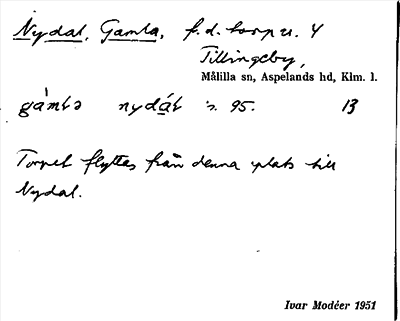 Nydal, Gamla, f.d. torp u. 4
Tillingeby,
Målilla sn, Aspelands hd, Klm. l.
gàmla nydá̱l s. 95. 13
Torpet flyttas från denna plats till
Nydal.
Ivar Modéer 1951